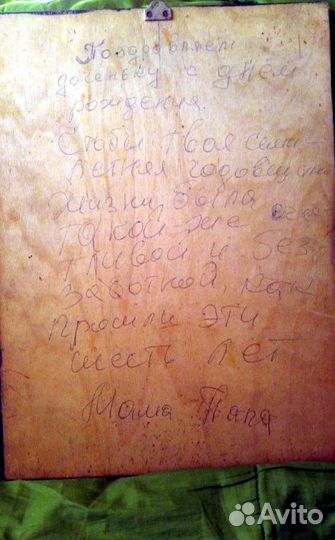 Поздравляем
доченьку с днём
рождения.
Чтобы твоя семи-
летняя годовщина
жизни была
такой-же счас
тливой и без
заботной, как
прошли эти
шесть лет
Мама Папа
Avito